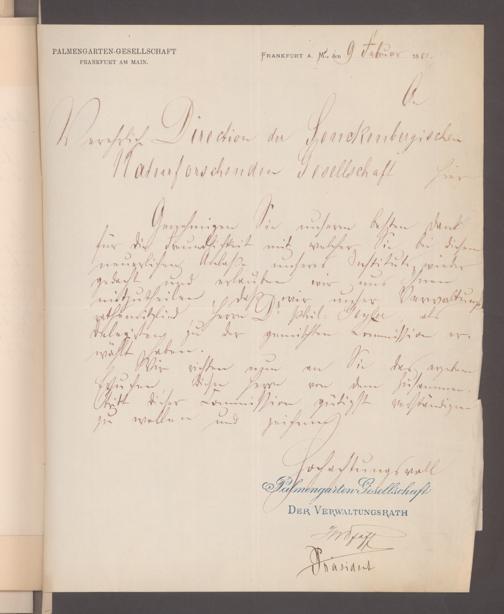 PALMENGARTEN-GESELLSCHAFT
FRANKFURT AM MAIN.
FRANKFURT A. M., den 9 Februar 18
An
Verehrliche Direction der Senckenbergischen
Naturforschenden Gesellschaft
hier
Genehmigen Sie unsern besten Dank
für die Freundlichkeit mit welcher Sie bei diesem
neuerlichen Anlaß unseres Instituts wieder
gedacht und erlauben wir uns Ihnen
mitzutheilen, daß wir unser Verwaltungs
rathsmitglied Herrn Dr. phil. als
Delegirten zu der gemischten Commission er-
wählt haben.
Wir richten nun an Sie das ergebene
Ersuchen diesen Herrn von dem Zusammen-
tritt dieser Commission gütigst verständigen
zu wollen und zeichnen
Hochachtungsvoll
Palmengarten-Gesellschaft
DER VERWALTUNGSRATH
Präsident